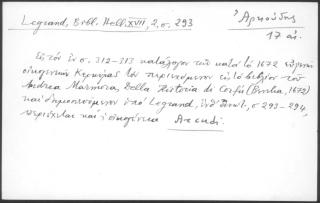 Legrand, Bibl. Hell. XVII, 2, σ. 293
Ἀρκούδης
17 αἰ.
Εἰς τὸ ἐν σ. 312-313 κατάλογον τῶν κατὰ τὸ 1672
οἰκογενειῶν Κερκύρας τὸν περιεχόμενον εἰς τὸ βιβλίον τοῦ
Andrea Marmora, Della Historia di Corfù (Venetia, 1672)
καὶ δημοσιευόμενον ὑπὸ Legrand, σ. 293-294,
περιέχεται καὶ ἡ οἰκογένεια Arcudi.